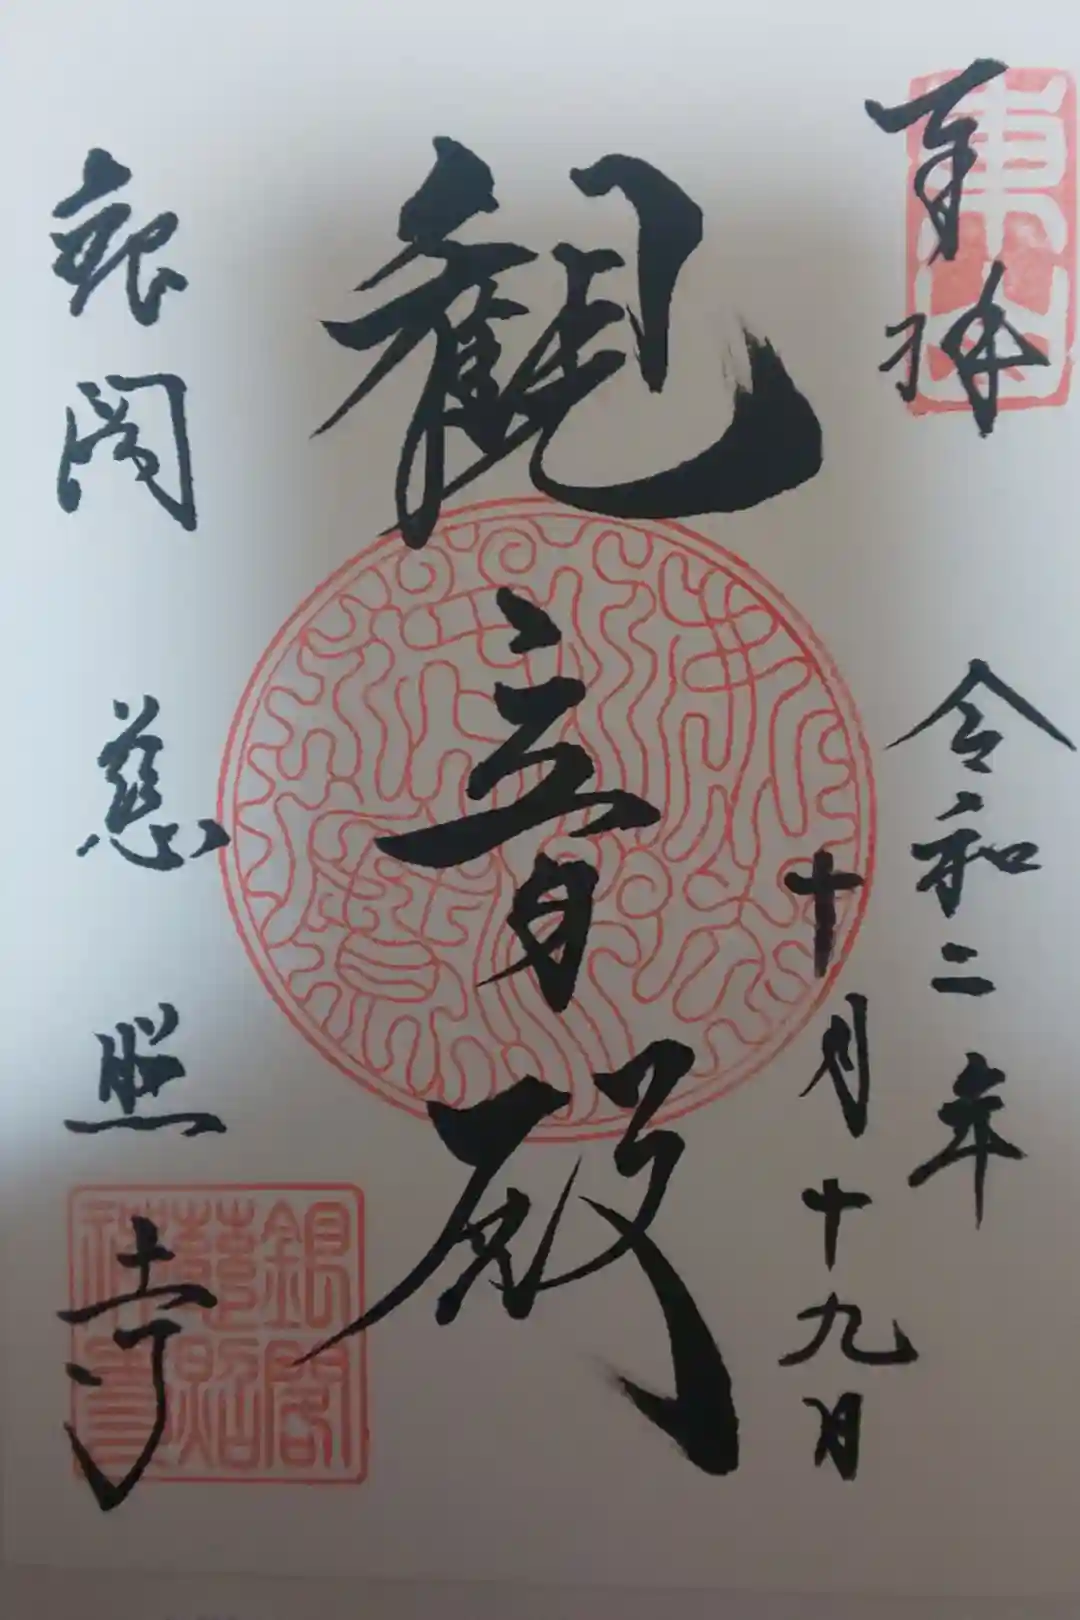 奉拝
東山
令和二年
十月十九日
観音殿
銀閣
慈照寺
銀閣
慈照